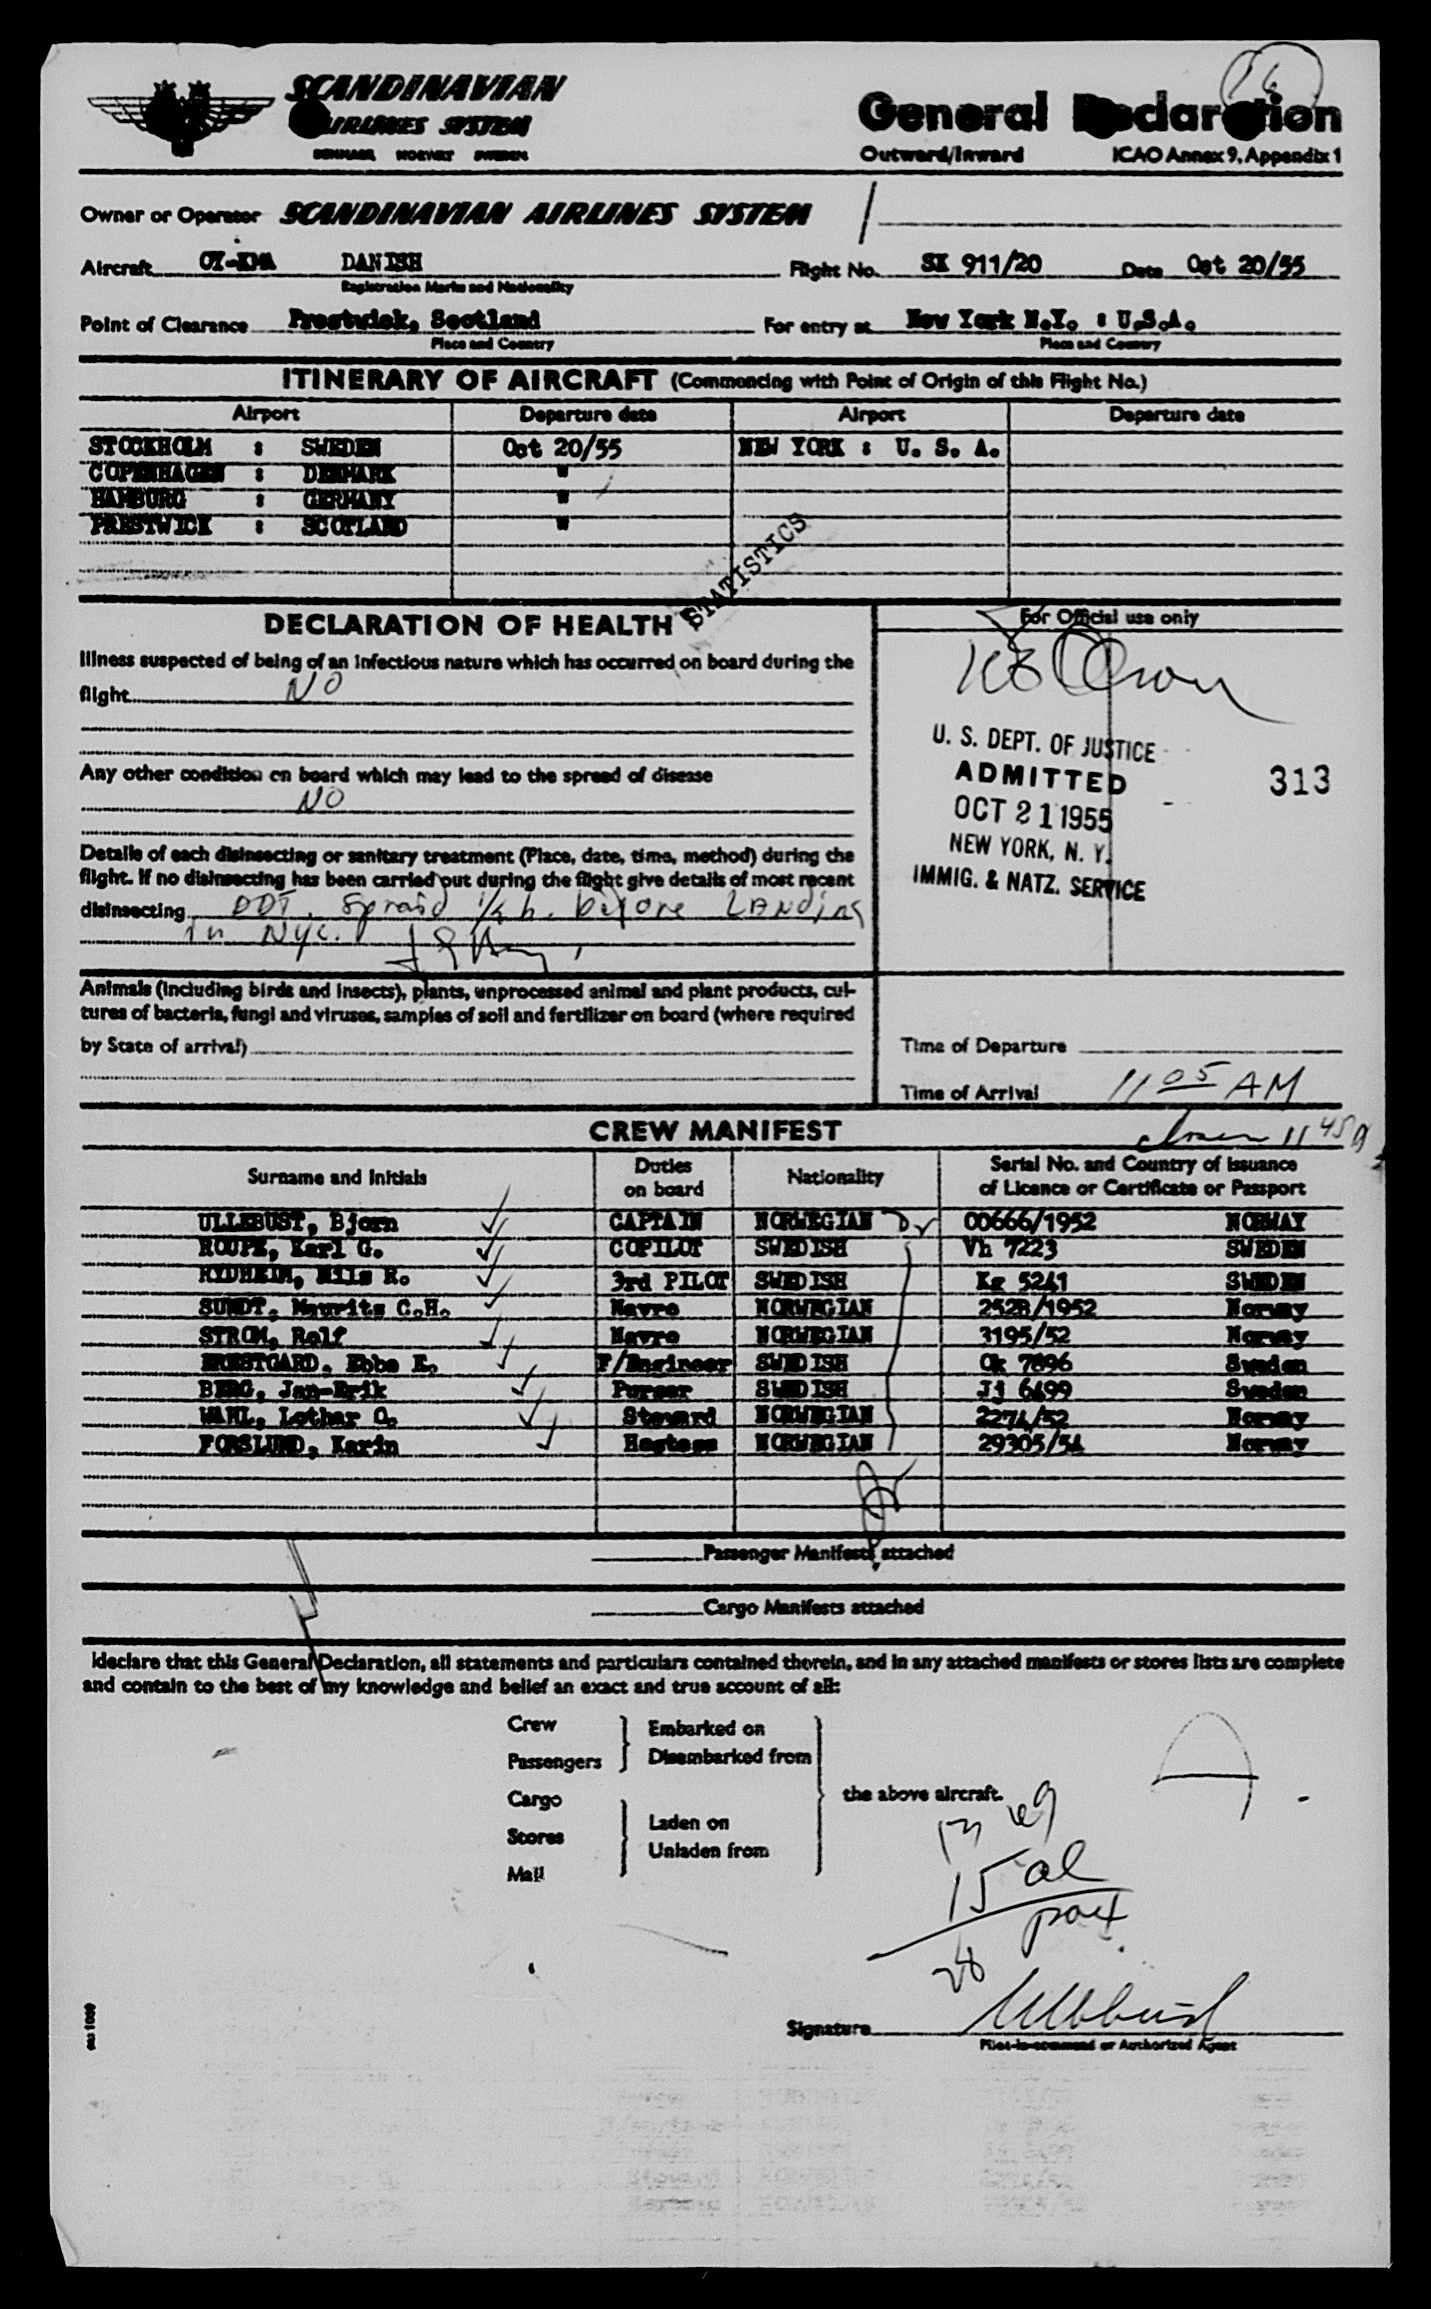 SCANDINAVIAN
AIRLINES SYSTEM
DENMARK NORWAY SWEDEN
General Declaration
Outward/Inward ICAO Annex 9, Appendix 1
Owner or Operator SCANDINAVIAN AIRLINES SYSTEM
Aircraft OY-KMA DANISH Flight No. SK 911/20 Date Oct 20/55
Registration Marks and Nationality
Point of Clearance Prestwick, Scotland For entry at New York N.Y. : U.S.A.
Place and Country Place and Country
ITINERARY OF AIRCRAFT (Commencing with Point of Origin of this Flight No.)
Airport Departure date Airport Departure date
STOCKHOLM : SWEDEN Oct 20/55 NEW YORK : U. S. A.
COPENHAGEN : DENMARK "
HAMBURG : GERMANY "
PRESTWICK : SCOTLAND "
STATISTICS
DECLARATION OF HEALTH
For Official use only
Illness suspected of being of an infectious nature which has occurred on board during the
flight NO
Any other condition on board which may lead to the spread of disease
NO
U. S. DEPT. OF JUSTICE
ADMITTED 313
OCT 21 1955
NEW YORK, N. Y.
IMMIG. & NATZ. SERVICE
Details of each disinsecting or sanitary treatment (Place, date, time, method) during the
flight. If no disinsecting has been carried out during the flight give details of most recent
disinsecting DDT. Spraid 1/2 h. before LANDing
in Nyc.
Animals (including birds and insects), plants, unprocessed animal and plant products, cul-
tures of bacteria, fungi and viruses, samples of soil and fertilizer on board (where required
by State of arrival)
Time of Departure
Time of Arrival 11 05 AM
11 45 a
CREW MANIFEST
Surname and Initials Duties on board Nationality Serial No. and Country of Issuance of Licence or Certificate or Passport
ULLEBUST, Bjorn CAPTAIN NORWEGIAN 00666/1952 NORWAY
ROUPE, Karl G. COPILOT SWEDISH Vh 7223 SWEDEN
RYDHEIM, Nils R. 3rd PILOT SWEDISH Kg 5241 SWEDEN
SUNDT, Mauritz C.H. Navro NORWEGIAN 2528/1952 Norway
STROM, Rolf Navro NORWEGIAN 3195/52 Norway
Ebbe E. F/Engineer SWEDISH Ok 7896 Sweden
BERG, Jan-Erik Purser SWEDISH Jj 6499 Sweden
WAHL, Lothar O. Steward NORWEGIAN 2274/52 Norway
FORSLUND, Karin Hostess NORWEGIAN 29305/54 Norway
Passenger Manifests attached
Cargo Manifests attached
I declare that this General Declaration, all statements and particulars contained therein, and in any attached manifests or stores lists are complete
and contain to the best of my knowledge and belief an exact and true account of all:
Crew
Passengers
Embarked on
Disembarked from
Cargo
Stores
Mail
Laden on
Unladen from
the above aircraft.
15 al
28 pax
Signature Ullebust
Pilot-in-command or Authorized Agent